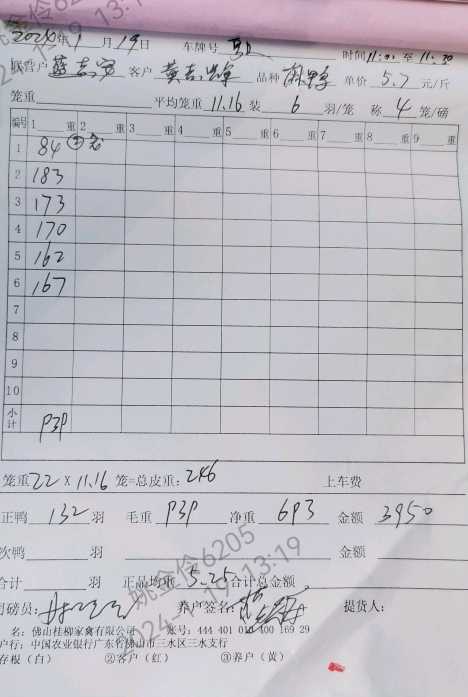 2024年1月19日 车牌号 时间11:01至11:30
联营户 客户 黄 品种 麻鸭 单价5.7元/斤
笼重 平均笼重11.16装6羽/笼 称4笼/磅
编号 1 重 2 重 3 重 4 重 5 重 6 重 7 重 8 重 9 重
1 84 ②笼
2 183
3 173
4 170
5 162
6 167
7
8
9
10
小计 939
笼重22×11.16笼=总皮重:246 上车费
正鸭132羽 毛重939 净重693 金额3950
次鸭 羽 金额
合计 羽 正品均重5.25合计总金额
司磅员: 养户签名: 提货人:
名:佛山桂柳家禽有限公司 账号:444 401 010 400 169 29
户行:中国农业银行广东省佛山市三水区三水支行
存根(白) ②客户(红) ③养户(黄)
姚金伶6205
2024-01-19 13:19